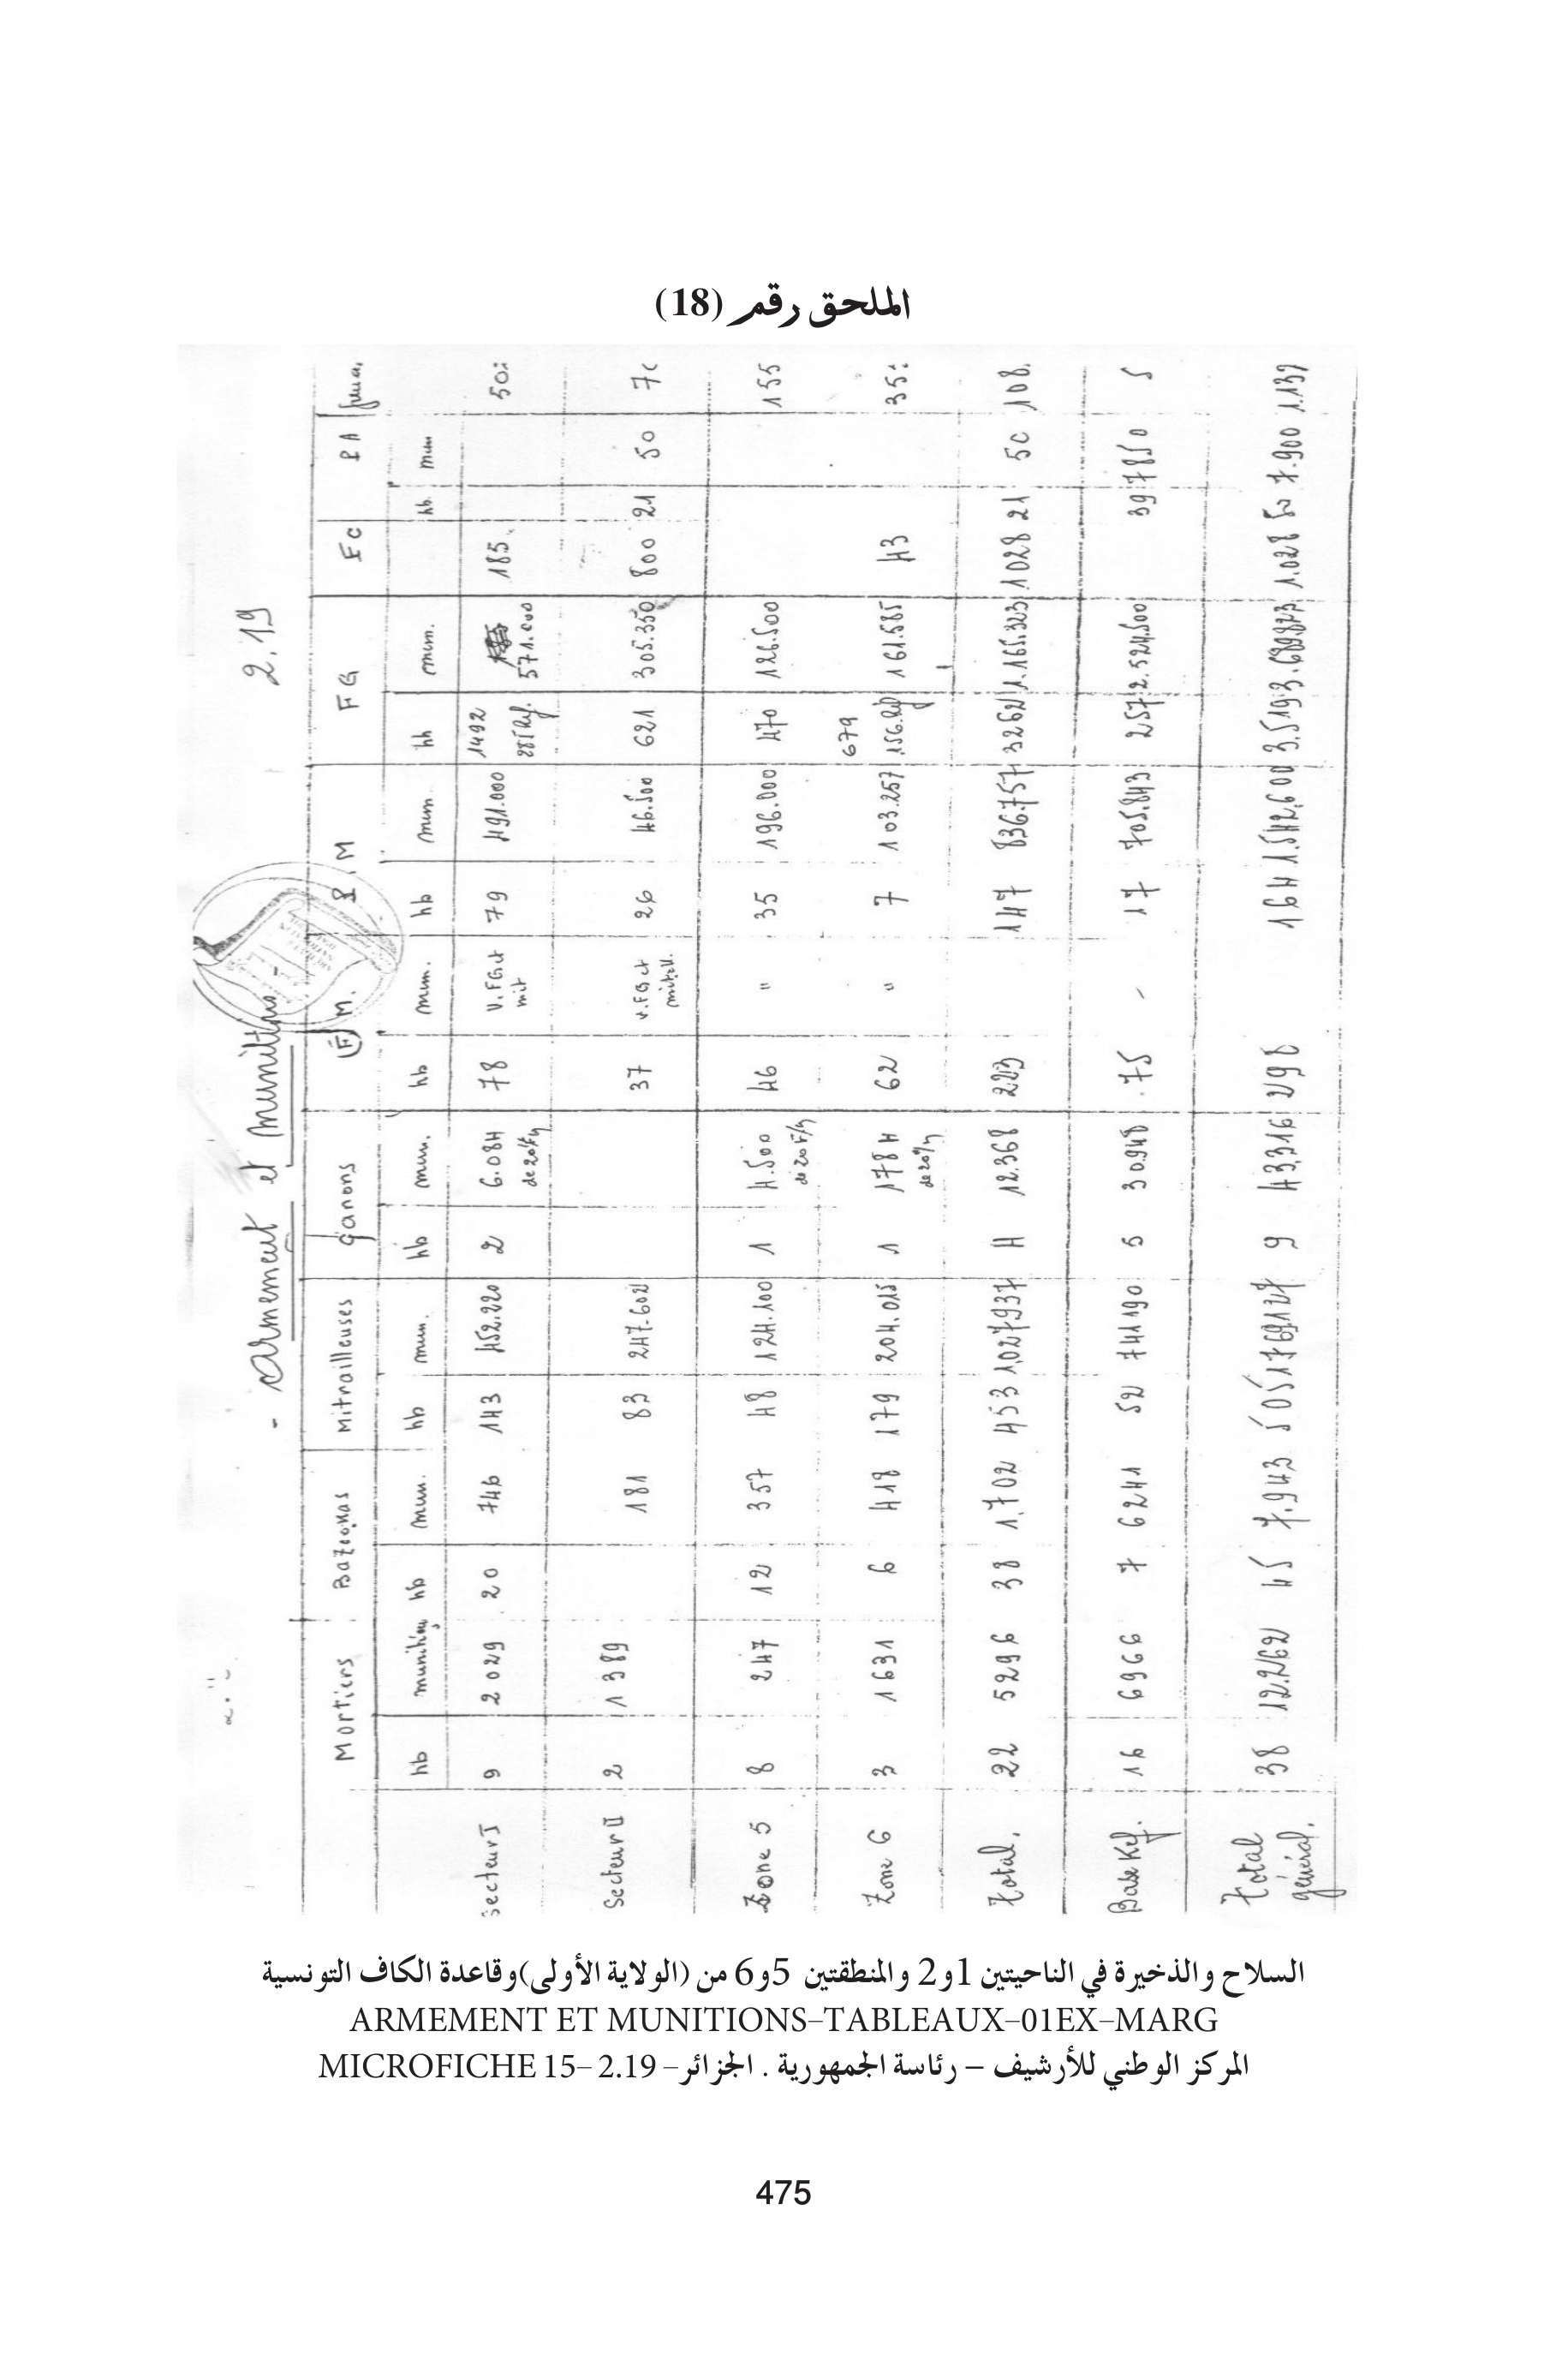 الملحق رقم (18)
2.19
- Armement et munitions -
Mortiers Bazookas Mitrailleuses Canons F M. P.M FG FC PA
hb munitions hb mun. hb mun. hb mun. hb mun. hb mun. hb mun. hb mun
Secteur I 9 2029 20 746 143 452.220 2 6.084 78 V. FG et mit 79 491.000 1492 571.000 185
Secteur II 2 1389 181 83 247.602 37 v. FG et mitrall. 26 46.500 621 305.350 800 21 50
Zone 5 8 247 12 357 48 124.100 1 4.500 46 " 35 196.000 470 126.500 155
Zone 6 3 1631 6 418 179 204.015 1 1784 62 " 7 103.257 679 161.585 43
Total. 22 5296 38 1.702 453 1.027937 4 12.368 223 147 836.757 3262 1.165.323 1028 21 50 108.
Base Kef. 16 6966 7 6241 52 741190 5 30.948 75 - 17 705.843 257 2.524.500 39 7850 5
Total général. 38 12.262 45 7.943 505 1769127 9 43316 298 164 1.542.600 3.519 3.689.823 1.028 60 7.900 1.139
السلاح والذخيرة في الناحيتين 1و2 والمنطقتين 5و6 من (الولاية الأولى)وقاعدة الكاف التونسية
ARMEMENT ET MUNITIONS–TABLEAUX–01EX–MARG
المركز الوطني للأرشيف – رئاسة الجمهورية . الجزائر– MICROFICHE 15– 2.19
475